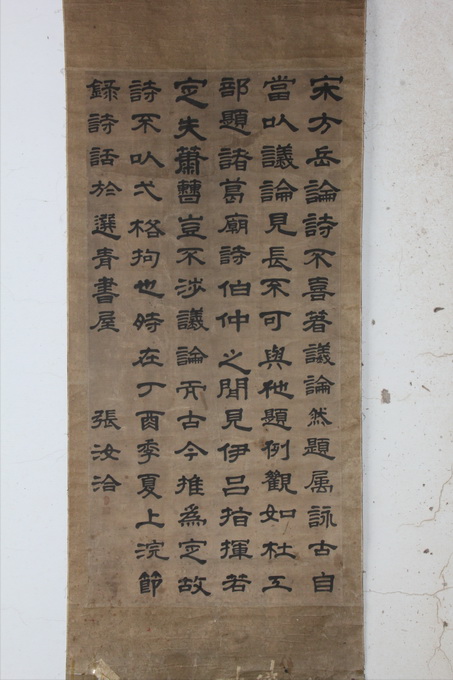 宋方岳論詩不喜著議論然題屬詠古自
當以議論見長不可與他題例觀如杜工
部題諸葛廟詩伯仲之間見伊呂指揮若
定失蕭曹豈不涉議論而古今推為定故
詩不以弋格拘也時在丁酉季夏上浣節
錄詩話於選青書屋
張汝洽